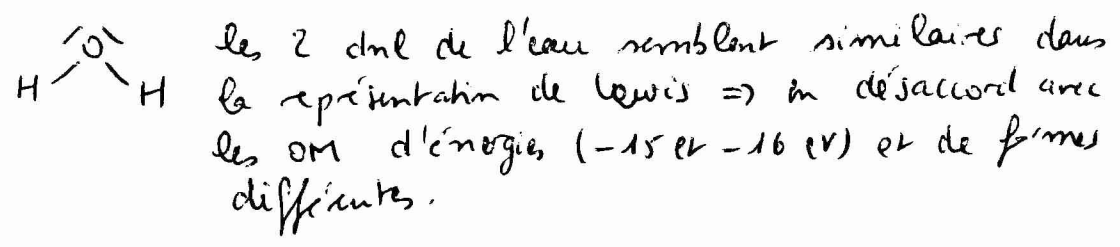 O les 2 dnl de l'eau semblent similaires dans
H H la représentation de Lewis => en désaccord avec
les OM d'énergies (-15 et -16 eV) et de formes
différentes.